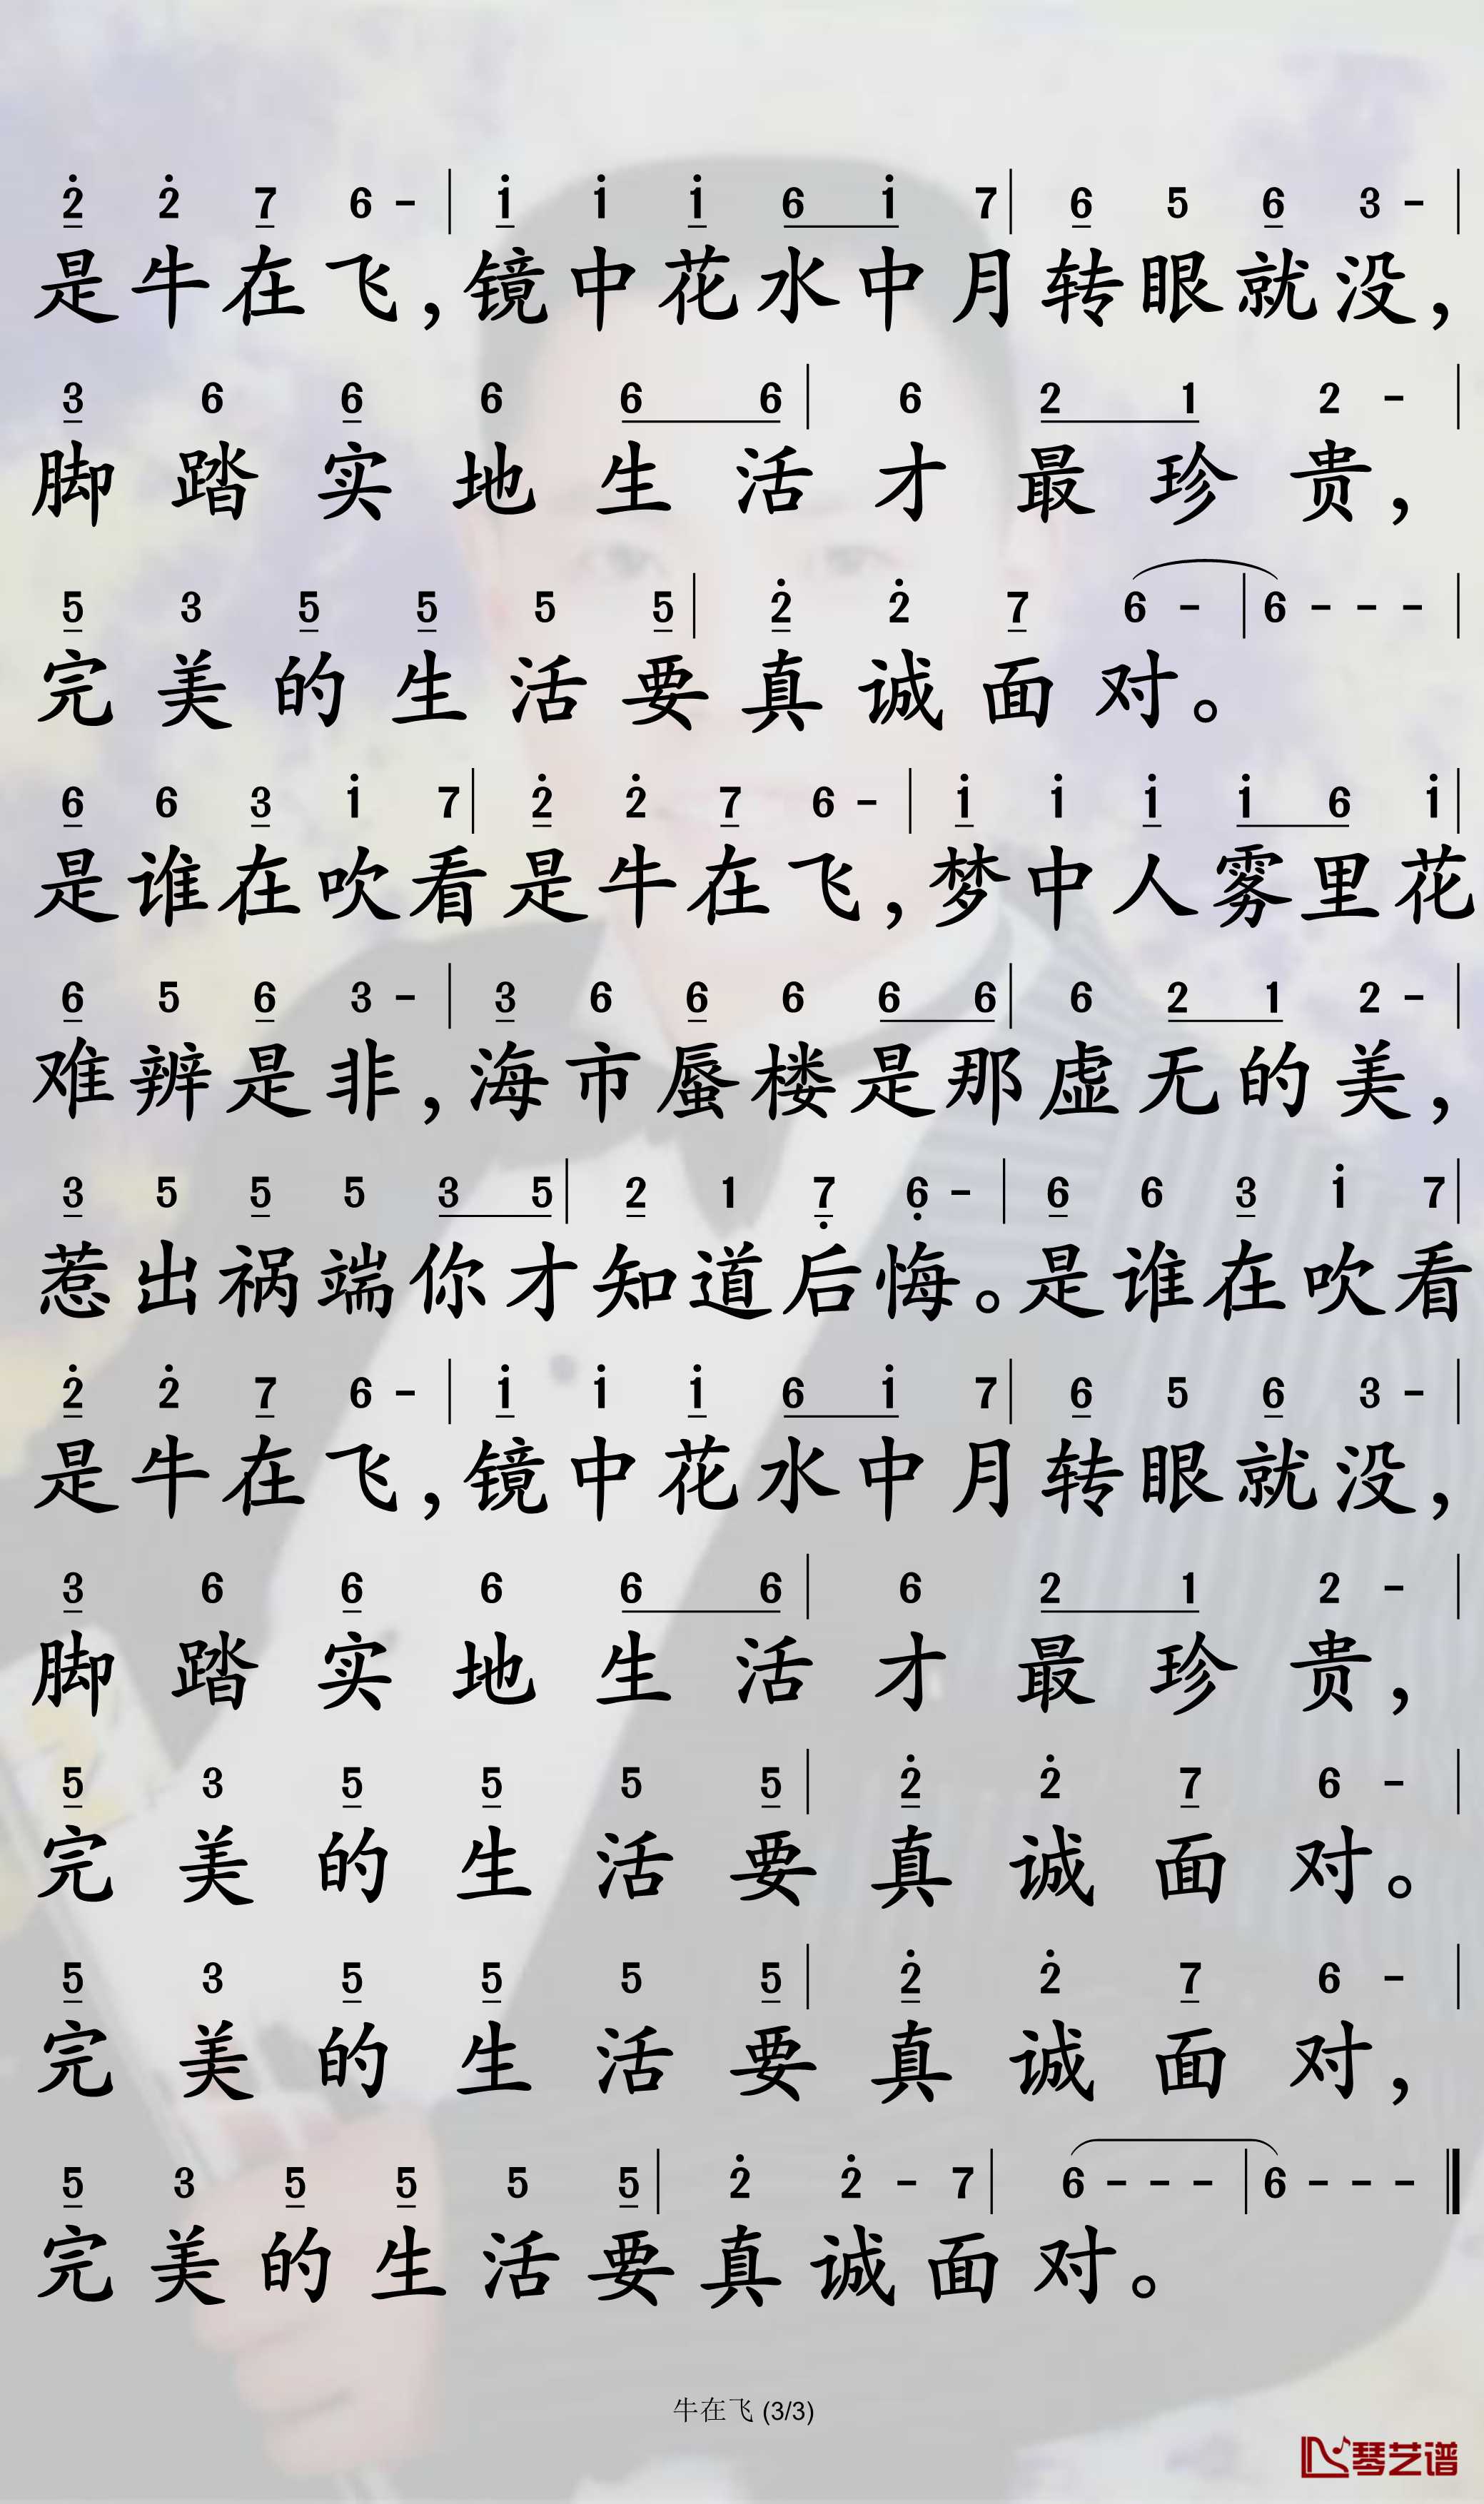 2̇ 2̇ 7 6 - | 1̇ 1̇ 1̇ 6 1̇ 7 | 6 5 6 3 - |
是牛在飞，镜中花水中月转眼就没，
3 6 6 6 6 6 | 6 2 1 2 - |
脚踏实地生活才最珍贵，
5 3 5 5 5 5 | 2̇ 2̇ 7 6 - | 6 - - - |
完美的生活要真诚面对。
6 6 3 1̇ 7 | 2̇ 2̇ 7 6 - | 1̇ 1̇ 1̇ 1̇ 6 1̇ |
是谁在吹看是牛在飞，梦中人雾里花
6 5 6 3 - | 3 6 6 6 6 6 | 6 2 1 2 - |
难辨是非，海市蜃楼是那虚无的美，
3 5 5 5 3 5 | 2 1 7̣ 6̣ - | 6 6 3 1̇ 7 |
惹出祸端你才知道后悔。是谁在吹看
2̇ 2̇ 7 6 - | 1̇ 1̇ 1̇ 6 1̇ 7 | 6 5 6 3 - |
是牛在飞，镜中花水中月转眼就没，
3 6 6 6 6 6 | 6 2 1 2 - |
脚踏实地生活才最珍贵，
5 3 5 5 5 5 | 2̇ 2̇ 7 6 - |
完美的生活要真诚面对。
5 3 5 5 5 5 | 2̇ 2̇ 7 6 - |
完美的生活要真诚面对，
5 3 5 5 5 5 | 2̇ 2̇ - 7 | 6 - - - | 6 - - - ‖
完美的生活要真诚面对。
牛在飞 (3/3)
琴艺谱